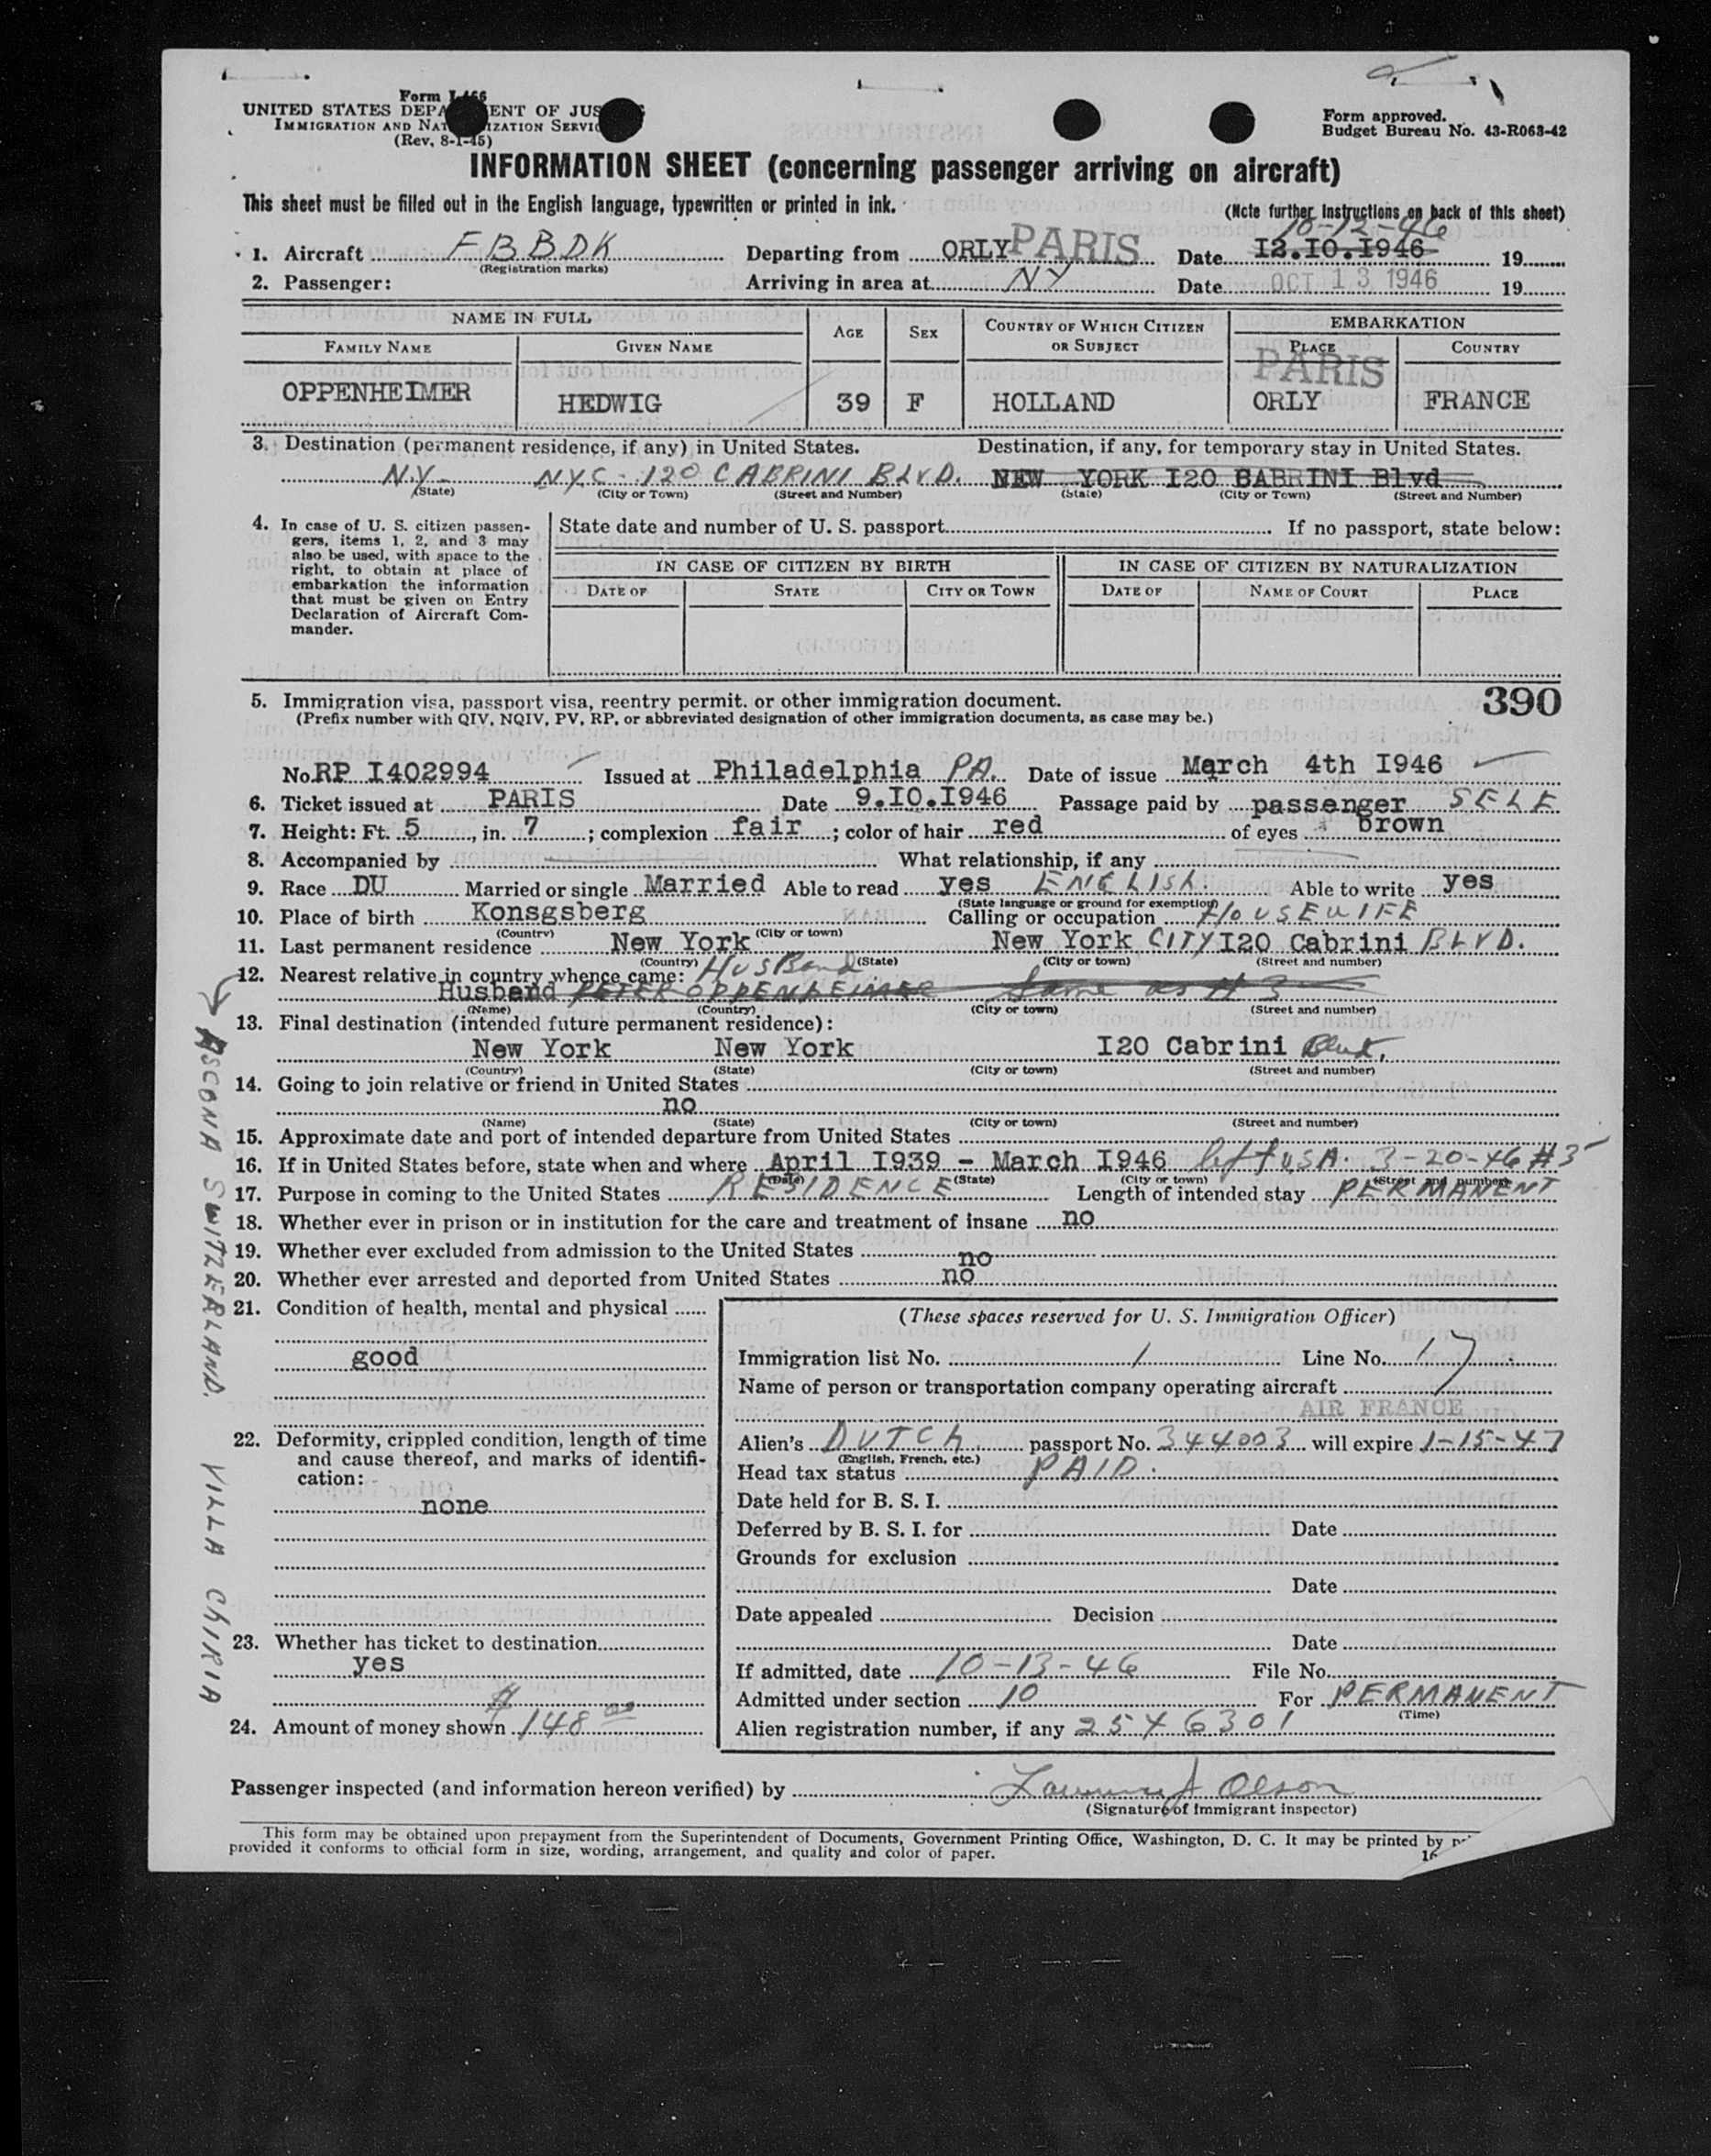 Form I-466
UNITED STATES DEPARTMENT OF JUSTICE
IMMIGRATION AND NATURALIZATION SERVICE
(Rev. 8-1-45)
Form approved.
Budget Bureau No. 43-R063-42
INFORMATION SHEET (concerning passenger arriving on aircraft)
This sheet must be filled out in the English language, typewritten or printed in ink.
(Note further instructions on back of this sheet)
10-12-46
1. Aircraft FBBDK Departing from ORLY PARIS Date 12.10.1946 19
(Registration marks)
2. Passenger: Arriving in area at NY Date OCT 13 1946 19
NAME IN FULL AGE SEX COUNTRY OF WHICH CITIZEN OR SUBJECT EMBARKATION
FAMILY NAME GIVEN NAME PLACE COUNTRY
PARIS
OPPENHEIMER HEDWIG 39 F HOLLAND ORLY FRANCE
3. Destination (permanent residence, if any) in United States. Destination, if any, for temporary stay in United States.
N.Y. NYC - 120 CABRINI BLVD. NEW YORK I20 BABRINI Blvd
(State) (City or Town) (Street and Number) (State) (City or Town) (Street and Number)
4. In case of U. S. citizen passen-
gers, items 1, 2, and 3 may
also be used, with space to the
right, to obtain at place of
embarkation the information
that must be given on Entry
Declaration of Aircraft Com-
mander.
State date and number of U. S. passport If no passport, state below:
IN CASE OF CITIZEN BY BIRTH IN CASE OF CITIZEN BY NATURALIZATION
DATE OF STATE CITY OR TOWN DATE OF NAME OF COURT PLACE
5. Immigration visa, passport visa, reentry permit. or other immigration document. 390
(Prefix number with QIV, NQIV, PV, RP, or abbreviated designation of other immigration documents, as case may be.)
No. RP I402994 Issued at Philadelphia PA. Date of issue March 4th I946
6. Ticket issued at PARIS Date 9.IO.I946 Passage paid by passenger SELF
7. Height: Ft. 5, in. 7; complexion fair; color of hair red of eyes brown
8. Accompanied by What relationship, if any
9. Race DU Married or single Married Able to read yes ENGLISH. Able to write yes
(State language or ground for exemption)
10. Place of birth Konsgsberg Calling or occupation HOUSEWIFE
(Country) (City or town)
11. Last permanent residence New York New York CITY I20 Cabrini BLVD.
(Country) (State) (City or town) (Street and number)
12. Nearest relative in country whence came: Husband
Husband PETER OPPENHEIMER Same as # 3
(Name) (Country) (City or town) (Street and number)
13. Final destination (intended future permanent residence):
New York New York I20 Cabrini Blvd.
(Country) (State) (City or town) (Street and number)
14. Going to join relative or friend in United States
no
(Name) (State) (City or town) (Street and number)
15. Approximate date and port of intended departure from United States
16. If in United States before, state when and where April I939 - March I946 left USA. 3-20-46 #3
(Date) (State) (City or town) (Street and number)
17. Purpose in coming to the United States RESIDENCE Length of intended stay PERMANENT
18. Whether ever in prison or in institution for the care and treatment of insane no
19. Whether ever excluded from admission to the United States no
20. Whether ever arrested and deported from United States no
21. Condition of health, mental and physical
good
22. Deformity, crippled condition, length of time
and cause thereof, and marks of identifi-
cation:
none
23. Whether has ticket to destination
yes
24. Amount of money shown $148 00
(These spaces reserved for U. S. Immigration Officer)
Immigration list No. 1 Line No. 17
Name of person or transportation company operating aircraft
AIR FRANCE
Alien's DUTCH passport No. 344003 will expire 1-15-47
(English, French, etc.)
Head tax status PAID.
Date held for B. S. I.
Deferred by B. S. I. for Date
Grounds for exclusion
Date
Date appealed Decision
Date
If admitted, date 10-13-46 File No.
Admitted under section 10 For PERMANENT
(Time)
Alien registration number, if any 2546301
ASCONA SWITZERLAND. VILLA CHIRIA
Passenger inspected (and information hereon verified) by Olson
(Signature of Immigrant inspector)
This form may be obtained upon prepayment from the Superintendent of Documents, Government Printing Office, Washington, D. C. It may be printed by
provided it conforms to official form in size, wording, arrangement, and quality and color of paper. 16